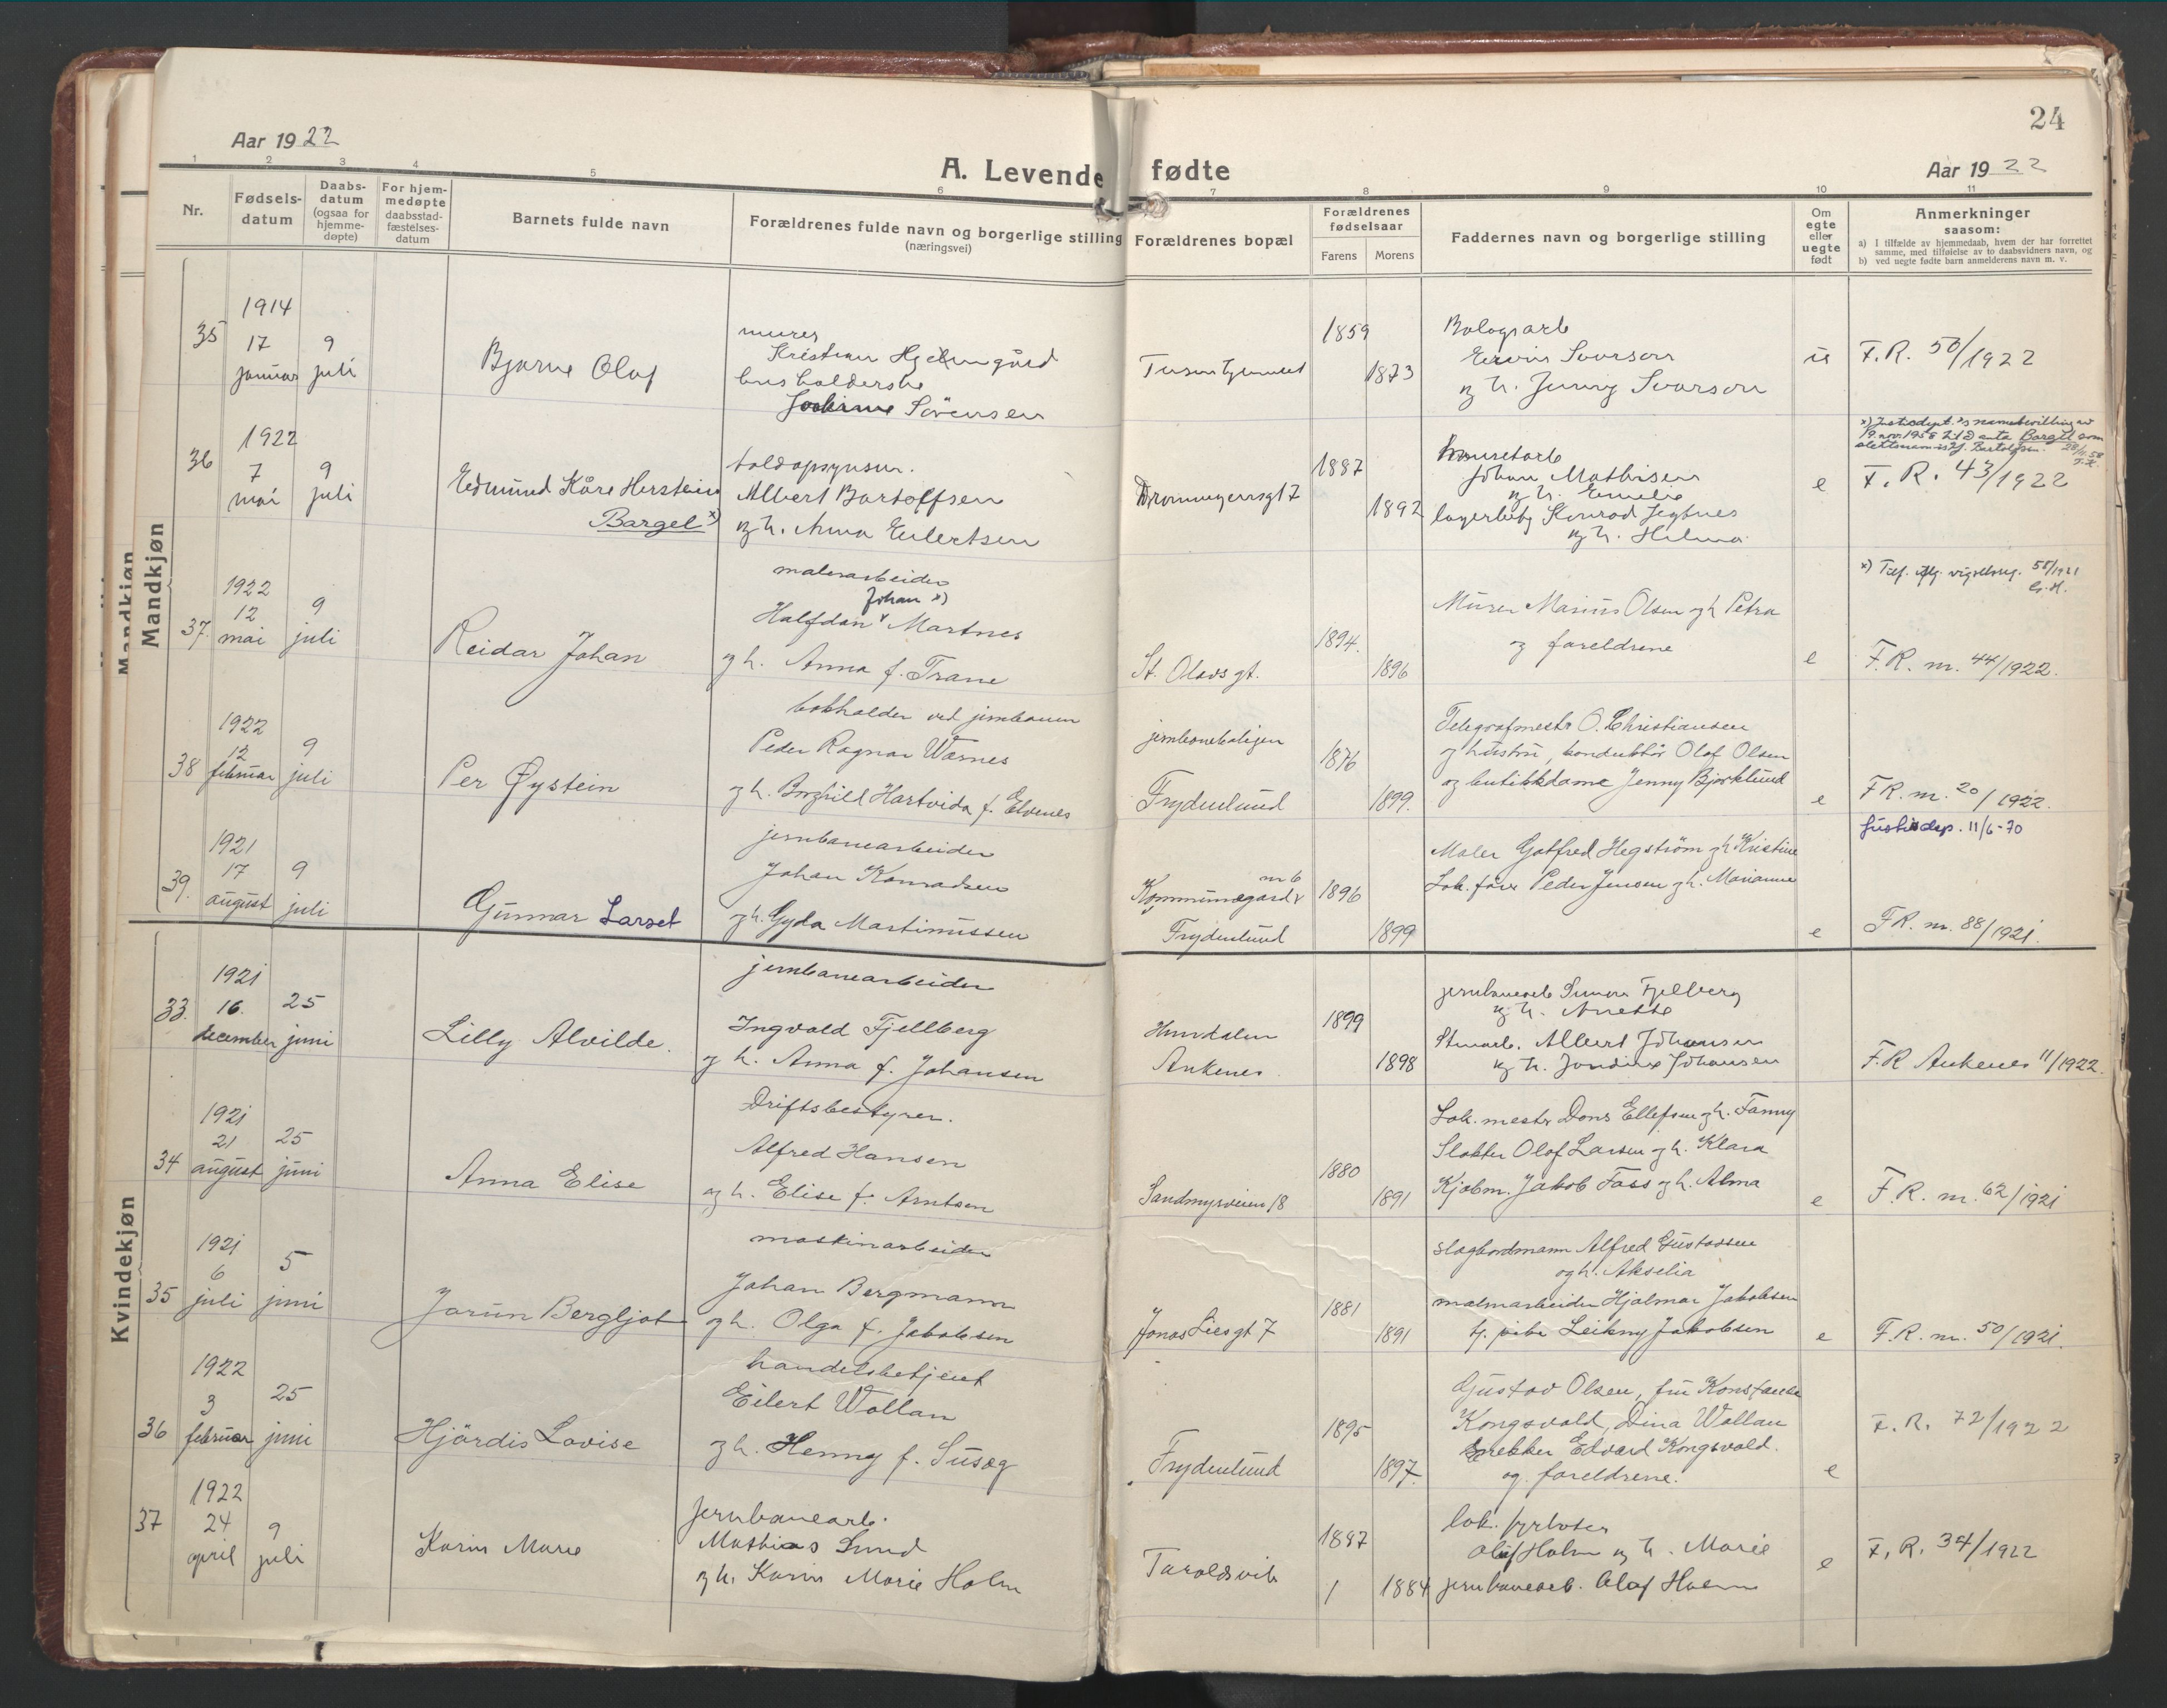 24
Aar 1922
A. Levende fødte
Aar 1922
1 2 3 4 5 6 7 8 9 10 11
Nr.
Fødsels-
datum
Daabs-
datum
(ogsaa for
hjemme-
døpte)
For hjem-
medøpte
daabsstad-
fæstelses-
datum
Barnets fulde navn
Forældrenes fulde navn og borgerlige stilling
(næringsvei)
Forældrenes bopæl
Forældrenes
fødselsaar
Farens
Morens
Faddernes navn og borgerlige stilling
Om
egte
eller
uegte
født
Anmerkninger
saasom:
a) I tilfælde av hjemmedaab, hvem der har forrettet
samme, med tilføielse av to daabsvidners navn, og
b) ved uegte fødte barn anmelderens navn m. v.
Mandkjøn
35
1914
17
januar
9
juli
Bjarne Olaf
murer
Kristian Hjelmgård
husholderske
Jochime Sörensen
1859
1873
Jenny Svorson
F.R. 50/1922
36
1922
7
mai
9
juli
Edmund Kåre Herstein
Bargel x)
Albert Bartolfsen
og h. Anna Eilertsen
Dronningensgt 7
1887
1892
Johan Mathisen
og h. Emelie
og h. Hilma
e
F.R. 43/1922
37.
1922
12
mai
9
juli
Reidar Johan
malerarbeider
Johan x)
Halfdan v Martnes
og h. Anna f. Trane
St. Olavs gt.
1894.
1896
Murer Marius Olsen og h Petra
og foreldrene
e
55/1921
G.H.
F.R. nr. 44/1922.
38
1922
12
februar
9
juli
Per Øystein
bokholder ved jernbanen
Peder Ragnar Warnes
og h. Borghild Hartvida f. Elvenes
jernbaneboligen
Frydenlund
1876
1899.
Telegrafmester O. Christiansen
og hustru, konduktör Olaf Olsen
og butikkdame Jenny Bjørklund
e
F.R. nr. 20/1922.
39.
1921
17
august
9
juli
Gunnar Larsel
jernbanearbeider
Johan Konradsen
og h. Gyda Martinussen
nr 6
Kommunegård v
Frydenlund
1896
1899
Maler Gotfred Hegström og h Kristine
Lok. fører Peder Jensen og h. Marianne
e
Justisdep. 11/6-70
F.R. nr. 88/1921.
Kvindekjøn
33.
1921
16.
december
25
juni
Lilly Alvilde.
jernbanearbeider
Ingvald Fjellberg
og h. Anna f. Johansen
Hundalen
Ankenes
1899
1898
og h. Anette
Albert Johansen
og h. Jondine Johansen
F.R Ankenes 11/1922.
34
1921
21
august
25
juni
Anna Elise
Driftsbestyrer.
Alfred Hansen
og h. Elise f. Arntsen
Sandmyrveien 18
1880
1891
Lok. mester Dons Ellefsen og h. Fanny
Slakter Olaf Larsen og h. Klara
Kjøbm. Jakob Foss og h. Alma
e
F.R. nr. 62/1921
35
1921
6
juli
5
juni
Jorun Bergljot
maskinarbeider
Johan Bergmann
og h. Olga f. Jakobsen
Jonas Liesgt 7
1881
1891
Alfred Gustavsen
og h. Akselia
malmarbeider Hjalmar Jakobsen
Leikny Jakobsen
e
F.R. nr. 50/1921.
36
1922
3
februar
25
juni
Hjördis Lovise
handelsbetjent
Eilert Wollan
og h. Henny f. Susæg
Frydenlund
1895
1897.
Gustav Olsen, fru Konstanse
Kongsvold, Dina Wollan
Snekker Edvard Kongsvold.
og foreldrene.
e
F.R. 72/1922
37
1922
24
april
9
juli
Karin Marie
jernbanearb.
Mathias Lund
og h. Karin Marie Holm
Taraldsvik
1887
1884
lok. fyrbøter
Olaf Holm og h. Marie
jernbanearb. Olaf Holm
e
F.R. 34/1922